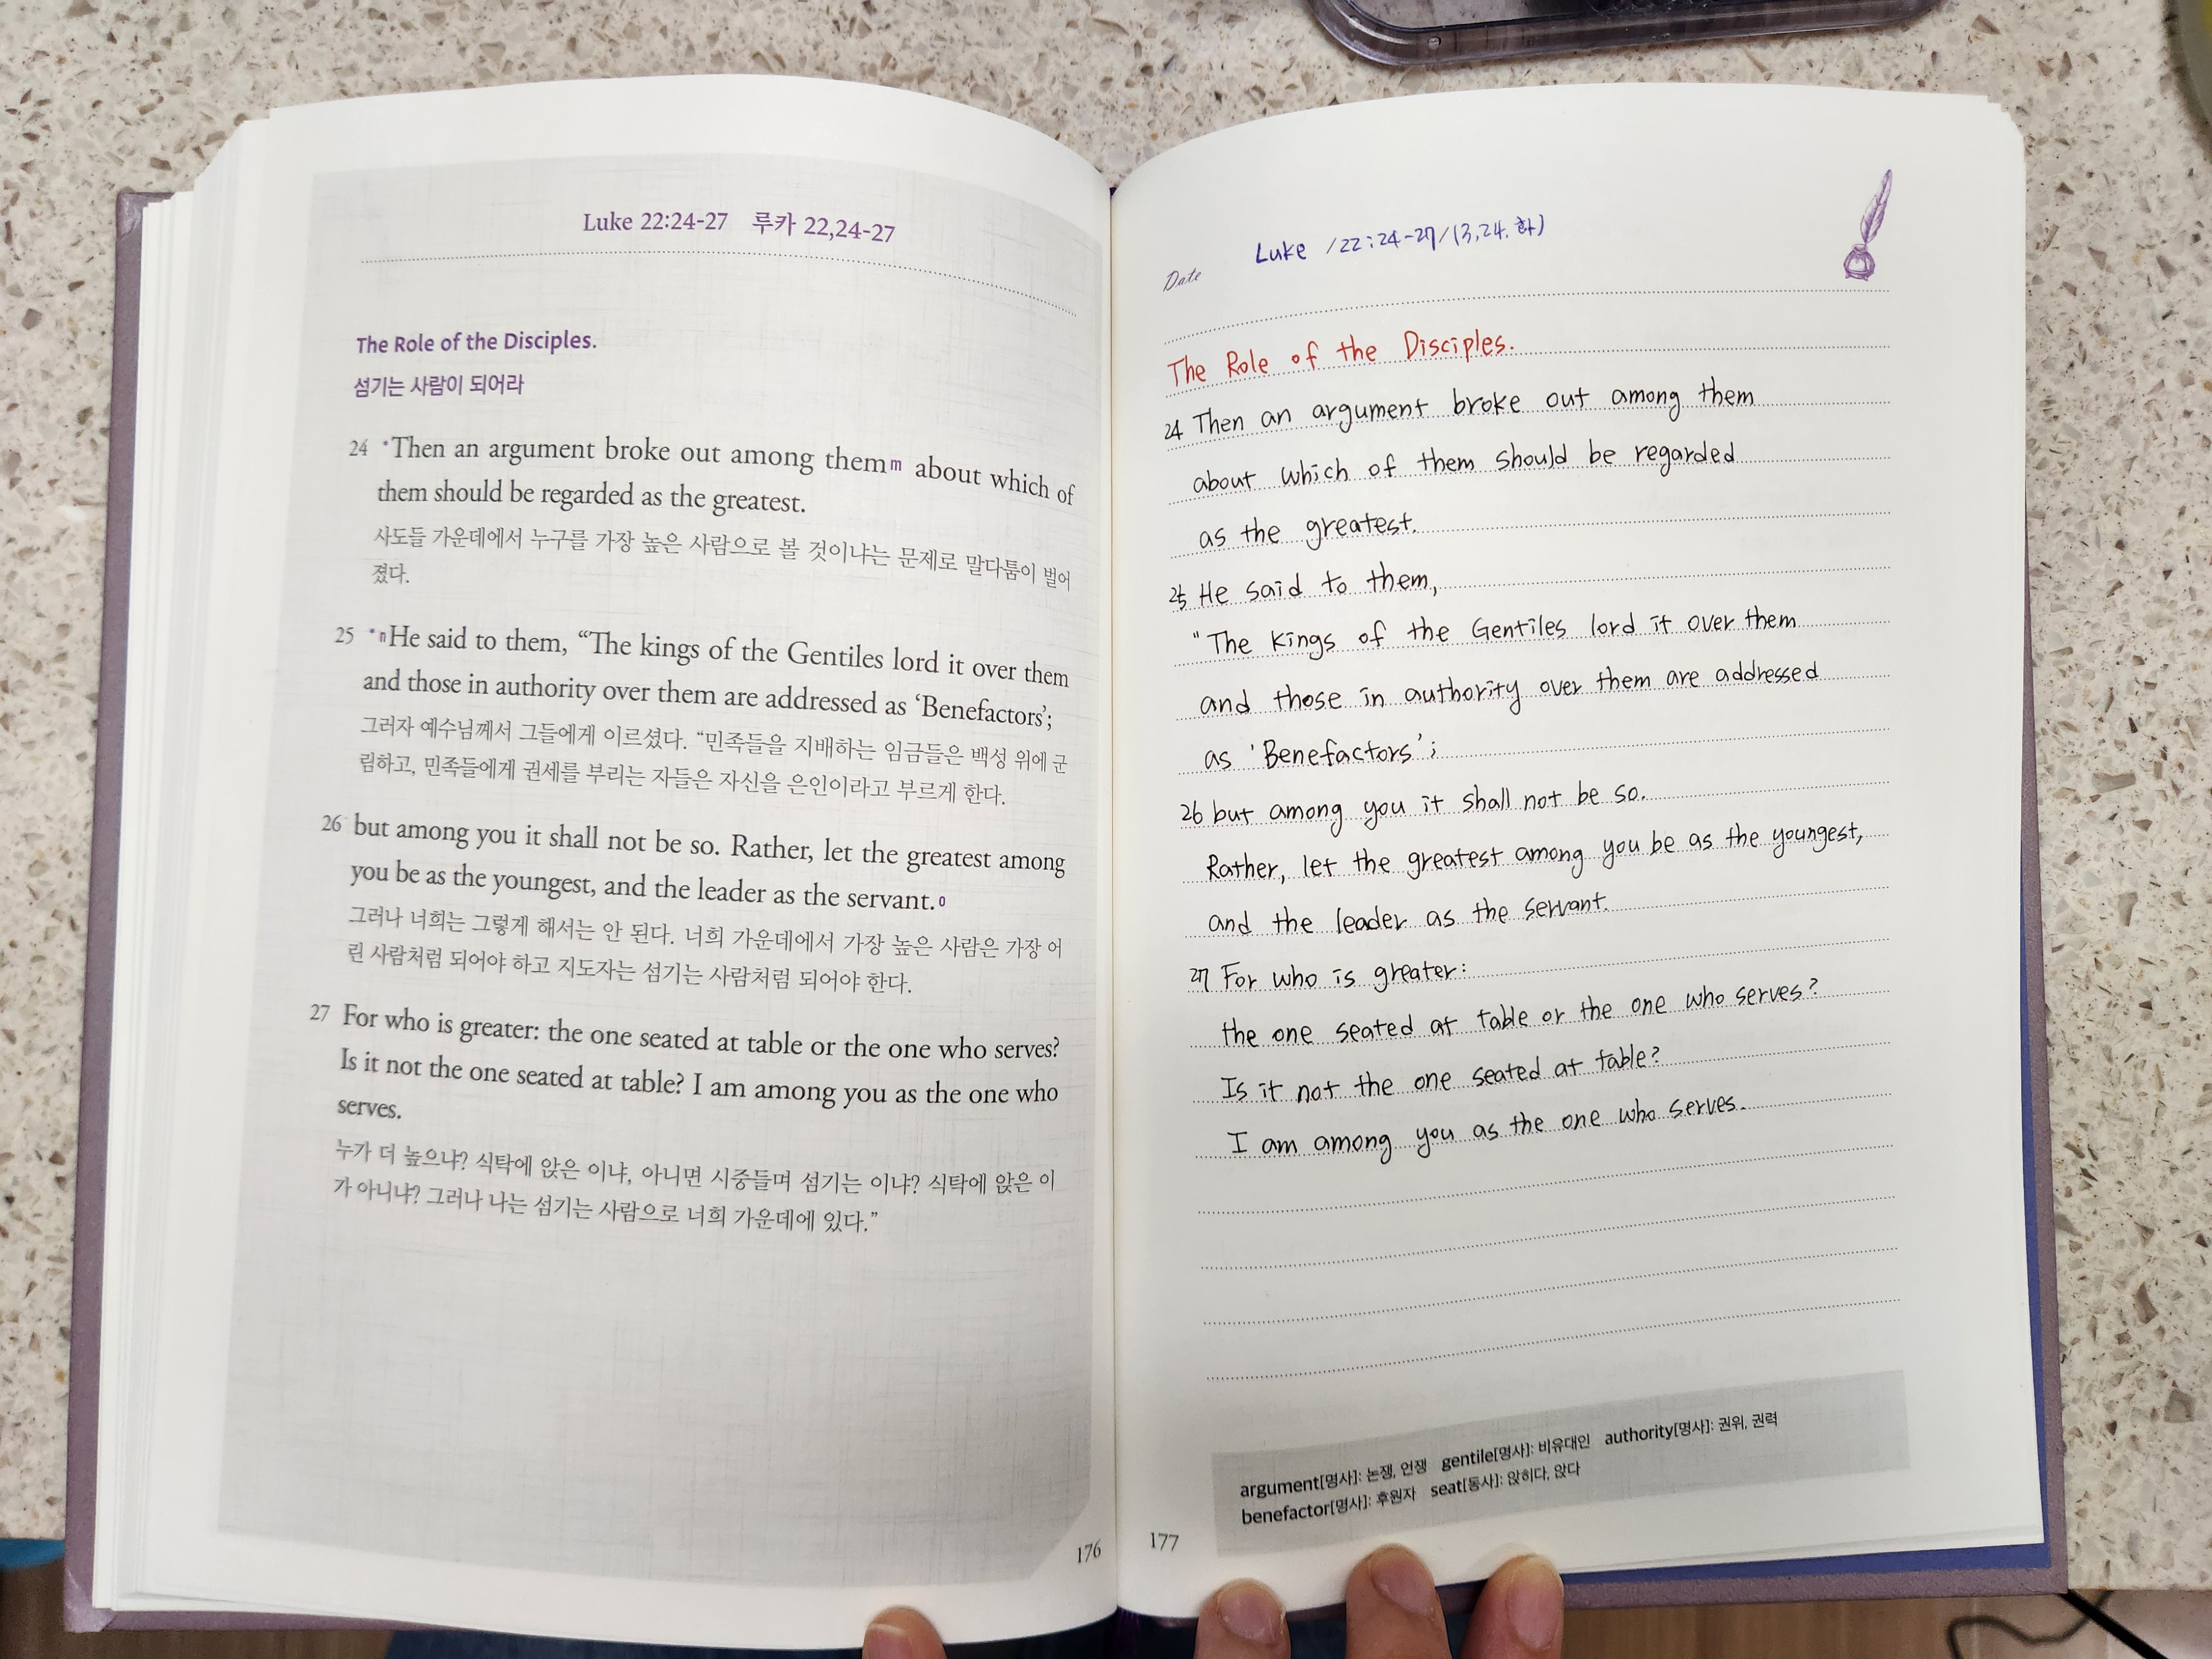 Luke 22:24-27 루카 22,24-27
The Role of the Disciples.
섬기는 사람이 되어라
24 *Then an argument broke out among them m about which of
them should be regarded as the greatest.
사도들 가운데에서 누구를 가장 높은 사람으로 볼 것이냐는 문제로 말다툼이 벌어
졌다.
25 * n He said to them, “The kings of the Gentiles lord it over them
and those in authority over them are addressed as ‘Benefactors’;
그러자 예수님께서 그들에게 이르셨다. “민족들을 지배하는 임금들은 백성 위에 군
림하고, 민족들에게 권세를 부리는 자들은 자신을 은인이라고 부르게 한다.
26 but among you it shall not be so. Rather, let the greatest among
you be as the youngest, and the leader as the servant. o
그러나 너희는 그렇게 해서는 안 된다. 너희 가운데에서 가장 높은 사람은 가장 어
린 사람처럼 되어야 하고 지도자는 섬기는 사람처럼 되어야 한다.
27 For who is greater: the one seated at table or the one who serves?
Is it not the one seated at table? I am among you as the one who
serves.
누가 더 높으냐? 식탁에 앉은 이냐, 아니면 시중들며 섬기는 이냐? 식탁에 앉은 이
가 아니냐? 그러나 나는 섬기는 사람으로 너희 가운데에 있다.”
176
Date Luke /22:24-27/(3.24. 화)
The Role of the Disciples.
24 Then an argument broke out among them
about which of them should be regarded
as the greatest.
25 He said to them,
"The Kings of the Gentiles lord it over them
and those in authority over them are addressed
as 'Benefactors';
26 but among you it shall not be so.
Rather, let the greatest among you be as the youngest,
and the leader as the servant.
27 For who is greater:
the one seated at table or the one who serves?
Is it not the one seated at table?
I am among you as the one who serves.
argument[명사]: 논쟁, 언쟁 gentile[명사]: 비유대인 authority[명사]: 권위, 권력
benefactor[명사]: 후원자 seat[동사]: 앉히다, 앉다
177